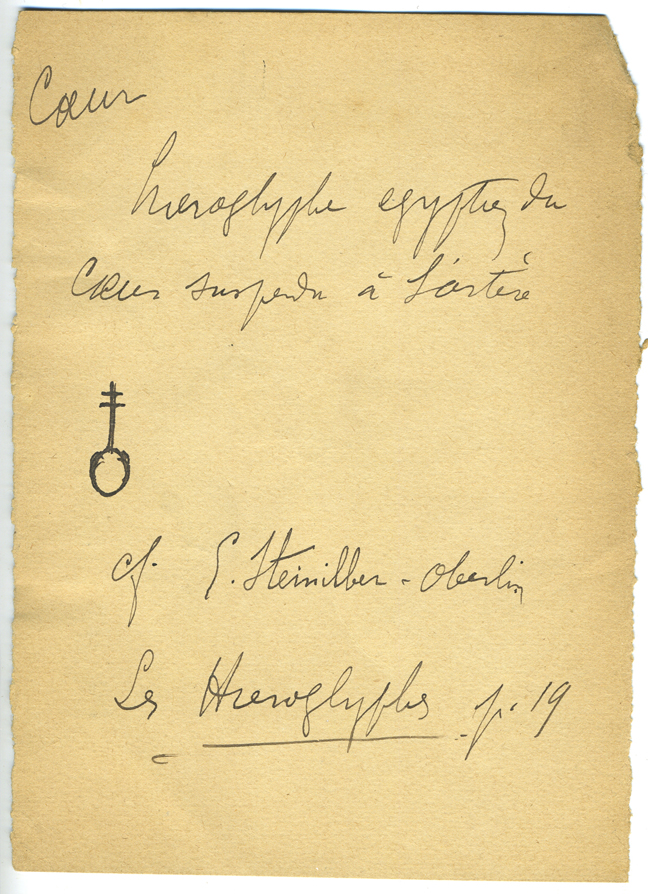 Cœur
hieroglyphe egyptien du
Cœur suspendu à l'artère
cf. E. Steinilber-Oberlin
Les Hieroglyphes p. 19